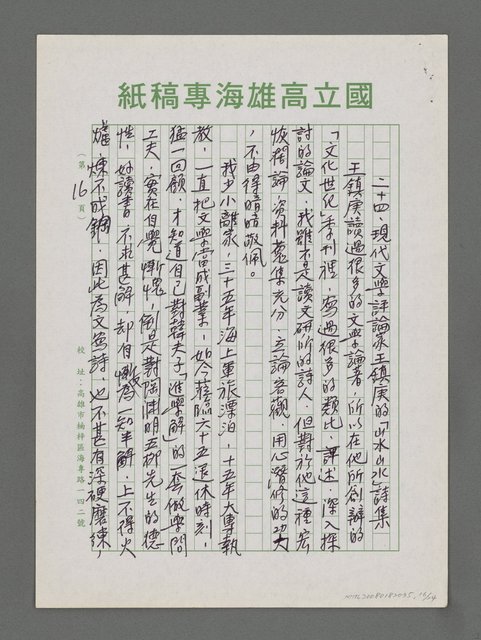 國立高雄海專稿紙
二十四、現代文學評論家王鎮庚的「山水山水」詩集
王鎮庚讀過很多的文學論著，所以在他所創辦的
「文化世紀」季刊裡，寫過很多的類比、評述、深入探
討的論文，我雖不是讀文研所的詩人，但對於他這種宏
恢擴論，資料蒐集充分，立論客觀，用心潛修的功夫
，不由得暗暗敬佩。
我少小離家，三十五年海上軍旅漂泊，十五年大專執
教，一直把文學當成副業，如今蒞臨六十五退休時刻，
猛一回顧，才知道自己對韓夫子「進學解」的一套做學問
工夫，實在自覺慚愧，倒是對陶淵明五柳先生的德
性，好讀書，不求甚解，却自慚為一知半解，上不得火
爐，煉不成鋼，因此為文寫詩，也不甚有深硬磨練，
（第16頁）
校址：高雄市楠梓區海專路一四二號
NMTL20080182035,16/54